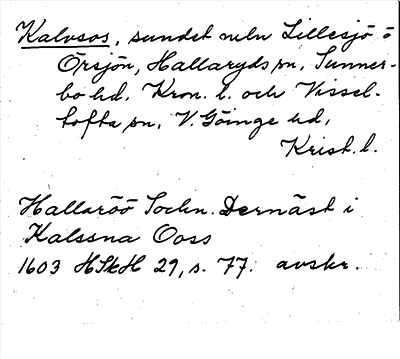 Kalvsos, sundet mln Lillesjö o
Örsjön, Hallaryds sn, Sunner-
bo hd, Kron. l. och Vissel-
tofta sn, V. Göinge hd,
Krist. l.
Hallaröö Sochn. Dernäst i
Kalssna Ooss
1603 HSkH 29, s. 77. avskr.